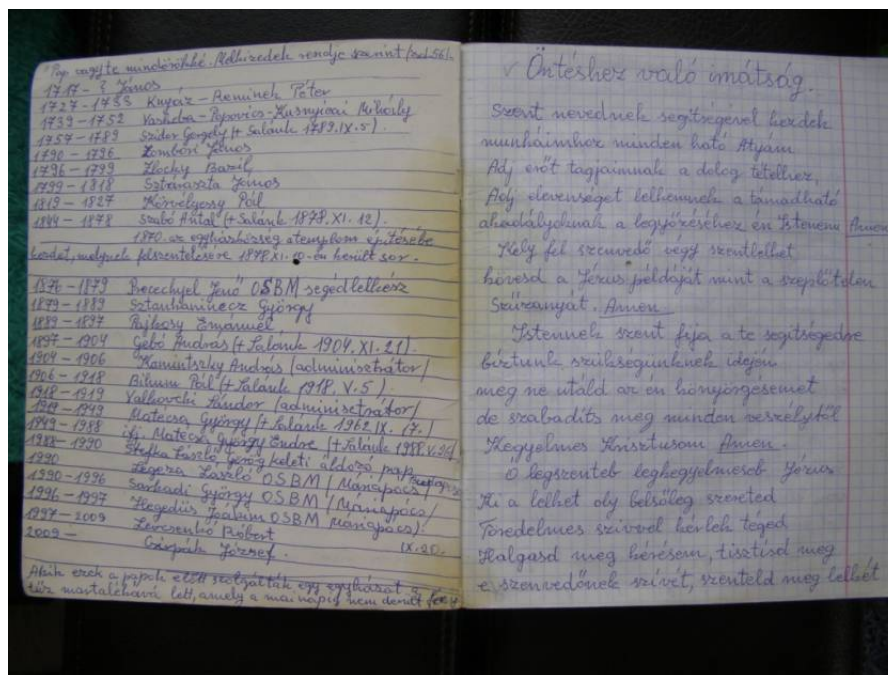 "Pap vagy te mindörökké. Melkizedek rendje szerint (zsd.56).
1717 - ? János
1727 - 1738 Knyáz - Reminek Péter
1739 - 1752 Popovics - Kusnyicai Mihály
1757 - 1789 Szidor Gergely (+ Salánk 1789. IX. 5).
1790 - 1796 Zombori János
1796 - 1799 Ilocky Bazil,
1799 - 1818 Sztaraszta János
1819 - 1827 Körvélyessy Pál
1844 - 1878 Szabó Antal (+ Salánk 1878. XI. 12).
1870. az egyházközség a templom építésébe
kezdet, melynek felszentelésére 1878. XI. 10-én került sor.
1876 - 1879 Jenő OSBM segédlelkész
1879 - 1889 Sztauhaninecz György
1889 - 1897 Rajkosy Emánuel
1897 - 1904 Gebé András (+ Salánk 1904. XI. 21).
1904 - 1906 Kamintszky András (adminisztrátor/
1906 - 1918 Bilium Pál (+ Salánk 1918. V. 5).
1918 - 1919 Valkovcki Sándor (adminisztrátor/
1919 - 1949 Matecsa György (+ Salánk 1962. IX. 17.)
1949 - 1988 ifj. Matecsa György Endre (+ Salánk 1988.
1988 - 1990 Stefka László görög keleti áldozó pap
1990 Legeza László OSBM (Máriapócs/
1990 - 1996 Sarkadi György OSBM (Máriapócs/
1996 - 1997 Hegedüs Joakim OSBM Máriapócs)
1997 - 2009 Levcsenkó Robert
2009 - Csirpák József. IX. 20.
Akik ezek a papok előtt szolgálták egy egyházat a
tűz martalékává lett, amely a mai napig nem derült fény
√ Öntéshez való imátság.
Szent nevednek segitségével kezdek
munkáimhoz minden ható Atyám
Adj erőt tagjaimnak a dolog tételhez,
Adj elevenséget lelkemnek a támadható
akadályoknak a legyőzéséhez én Istenem Amen
Kely fel szenvedő végy szentlelket
kövesd a Jézus példáját mint a szeplőtelen
Szűzanyát. Amen
Istennek szent fija a te segitségedre
biztunk szükségünknek idején
meg ne utáld az én könyörgésemet
de szabadits meg minden veszélytől
Kegyelmes Krisztusom Amen.
O legszenteb legkegyelmeseb Jézus
Ki a lelket oly belsőleg szereted
Töredelmes szivvel kérlek téged
Halgasd meg kérésem, tisztisd meg
e szenvedőnek szivét, szenteld meg lelkét